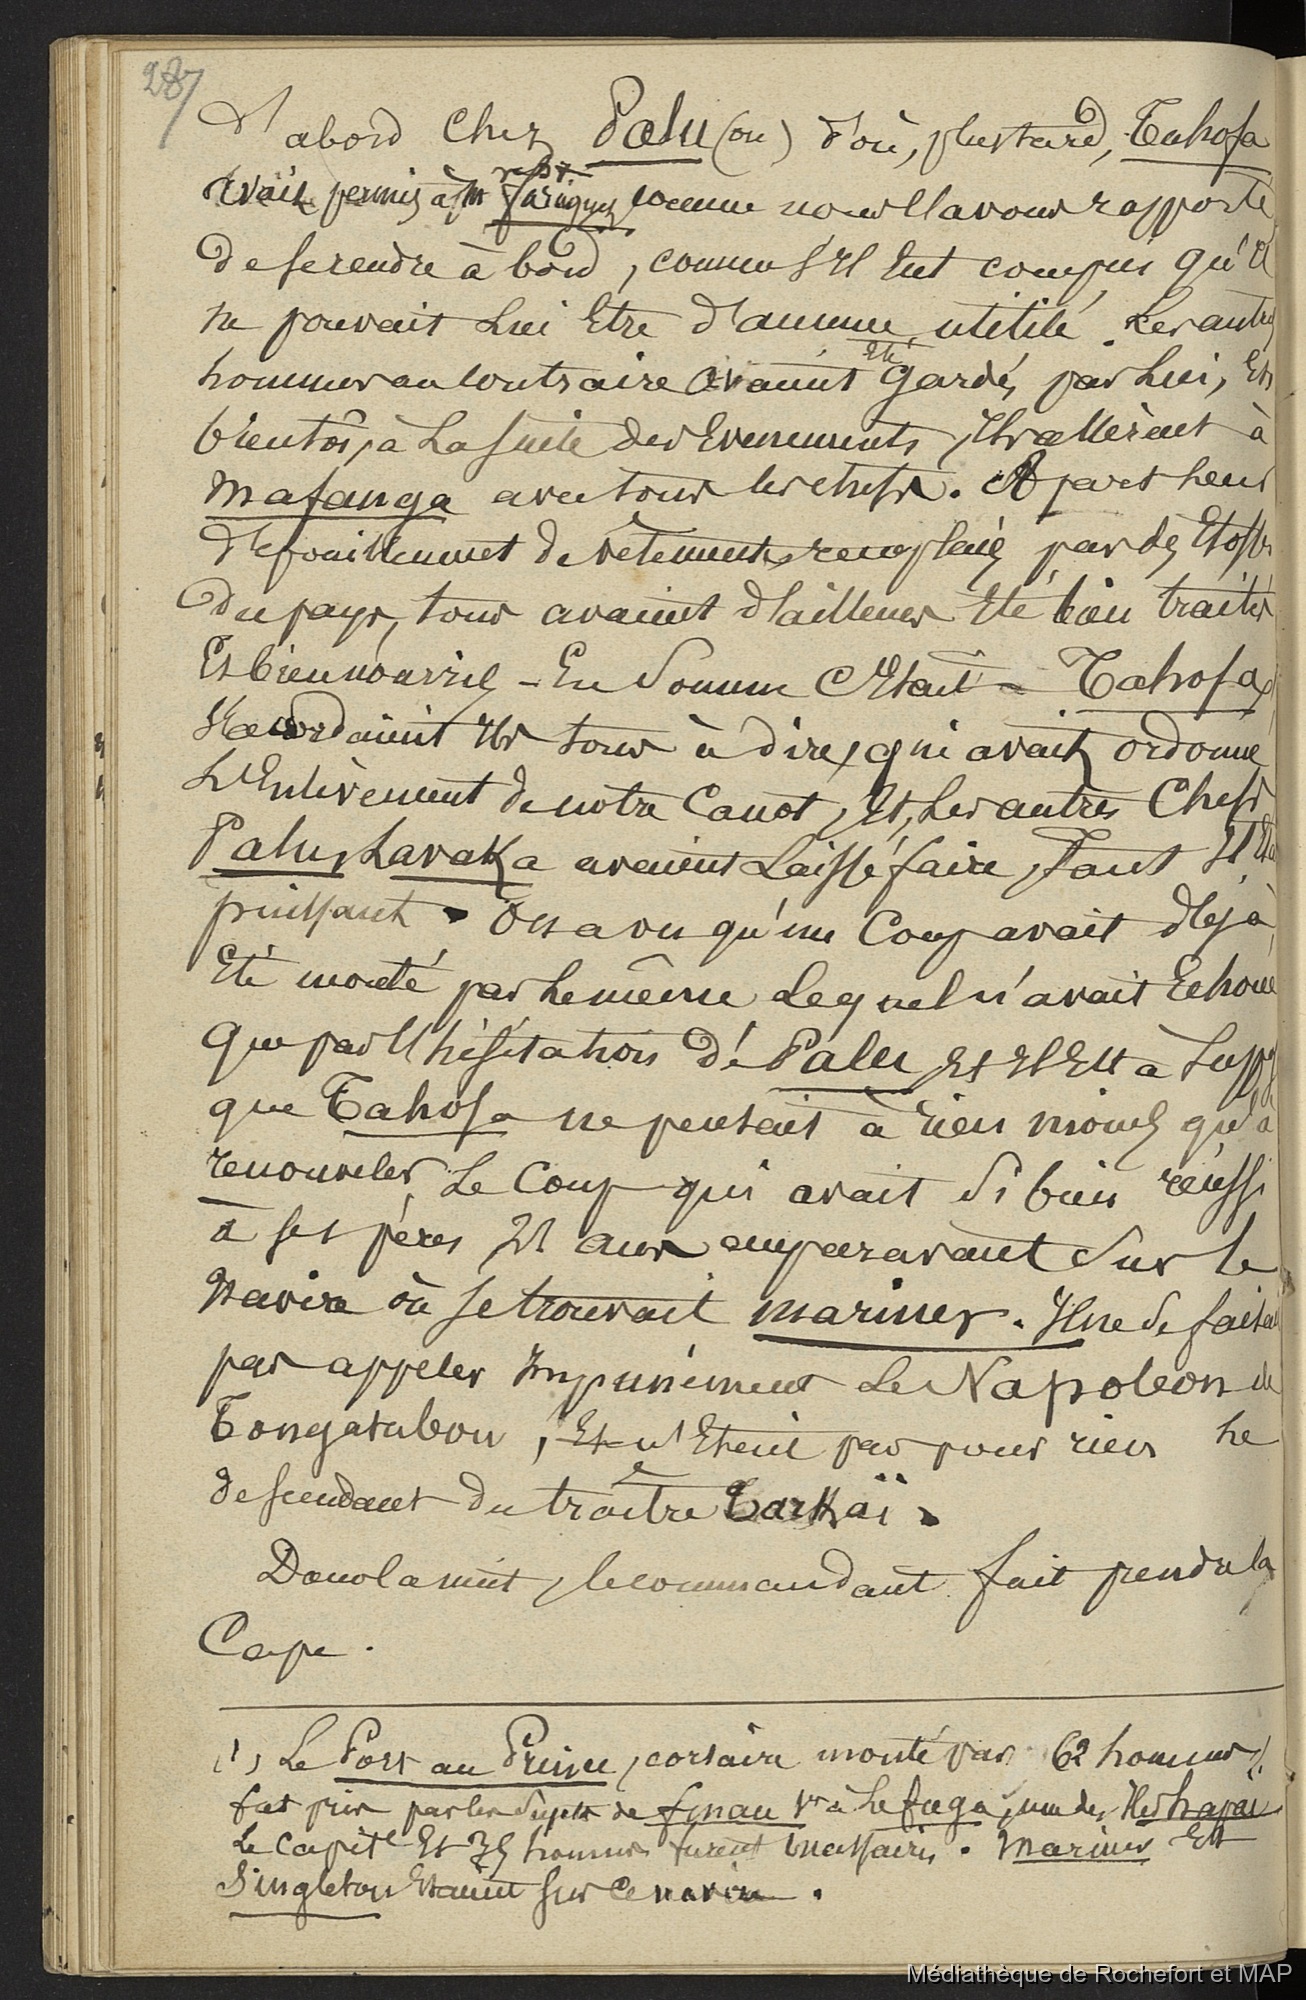 287
d'abord chez Palu (ou) d'où, plus tard, Tahofa
avait permis à Mr Faraguet comme nous l'avons rapporté
de se rendre à bord, comme s'il eut compris qu'il
ne pouvait lui être d'aucune utilité. Les autres
hommes au contraire avaient été gardés par lui, et
bientôt, à la suite des evenements, ils allèrent à
Mafanga avec tous les chefs. A part leur
dépouillement de vêtements remplacés par des étoffes
du pays, tous avaient d'ailleurs été bien traités
et bien nourris – En somme c'était Tahofa,
s'accordaient ils tous à dire, qui avait ordonné
l'enlèvement de notre canot, et, les autres chefs
Palu, Lavaka avaient laissé faire, tant il était
puissant. On a vu qu'un coup avait déjà
été monté par le même lequel n'avait échoué
que par l'hésitation de Palu et il est à supposer
que Tahofa ne pensait à rien moins qu'à
renouveler le coup qui avait si bien réussi
à ses pères 21 ans auparavant sur le
navire où se trouvait Mariner. Il ne se faisait
pas appeler impunément le Napoléon de
Tongatabou, et n'était pas pour rien le
descendant du traître Tarkaï.
Dans la nuit, le commandant fait prendre la
cape.
(1) Le Port au Prince, corsaire monté par 62 hommes
fut pris par les sujets de Finau 1er à Lefuga, une des îles Hapaï
Le capite et 35 hommes furent massacrés. Mariner et
Singleton étaient sur ce navire.
Médiathèque de Rochefort et MAP